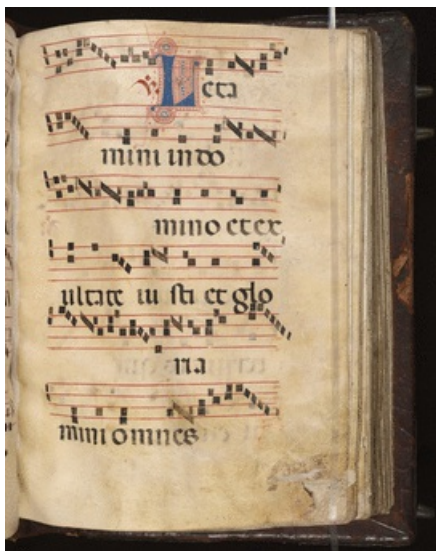 ℣. Leta
mini in do
mino et ex
ultate iu sti et glo
ria
mini omnes